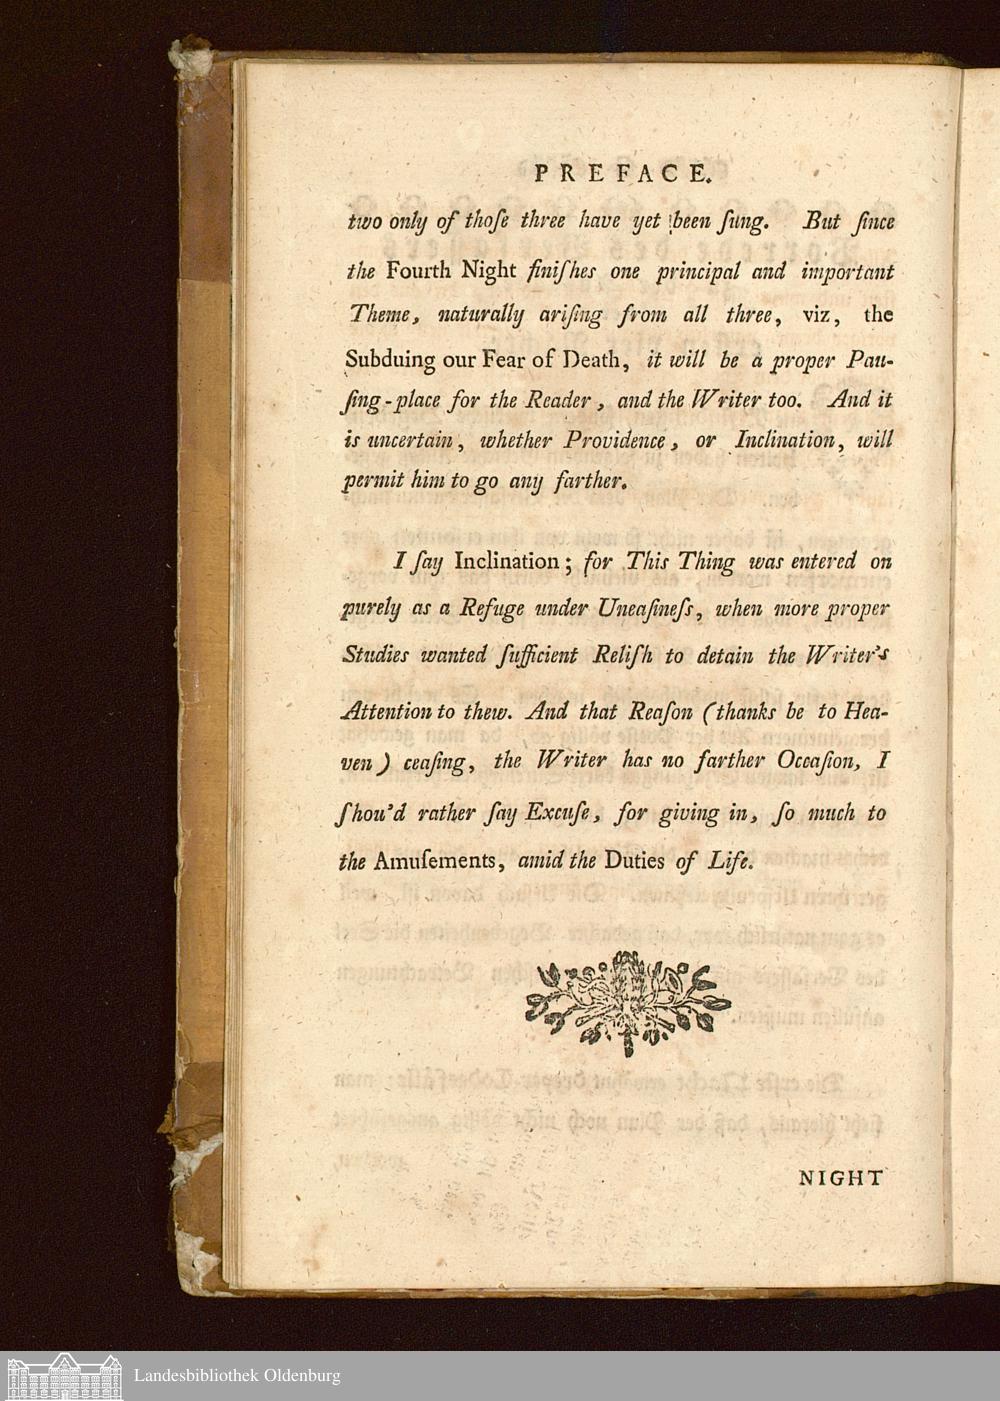 PREFACE.
two only of thoſe three have yet been ſung. But ſince
the Fourth Night finiſhes one principal and important
Theme, naturally ariſing from all three, viz, the
Subduing our Fear of Death, it will be a proper Pau-
ſing-place for the Reader, and the Writer too. And it
is uncertain, whether Providence, or Inclination, will
permit him to go any farther.
I ſay Inclination; for This Thing was entered on
purely as a Refuge under Uneaſineſs, when more proper
Studies wanted ſufficient Reliſh to detain the Writer's
Attention to thew. And that Reaſon (thanks be to Hea-
ven) ceaſing, the Writer has no farther Occaſion, I
ſhou'd rather ſay Excuſe, for giving in, ſo much to
the Amuſements, amid the Duties of Life.
NIGHT
Landesbibliothek Oldenburg